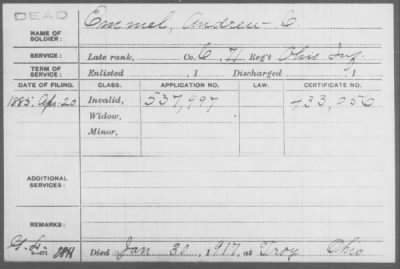 DEAD
NAME OF SOLDIER: Emmel, Andrew C
SERVICE: Late rank, Co. C, 71 Reg't Ohio Inf
TERM OF SERVICE: Enlisted , 1 Discharged , 1
DATE OF FILING. CLASS. APPLICATION NO. LAW. CERTIFICATE NO.
1885 Apr. 20 Invalid, 537,997 433,056
Widow,
Minor,
ADDITIONAL SERVICES:
REMARKS:
Died Jan 31, 1917, at Troy Ohio